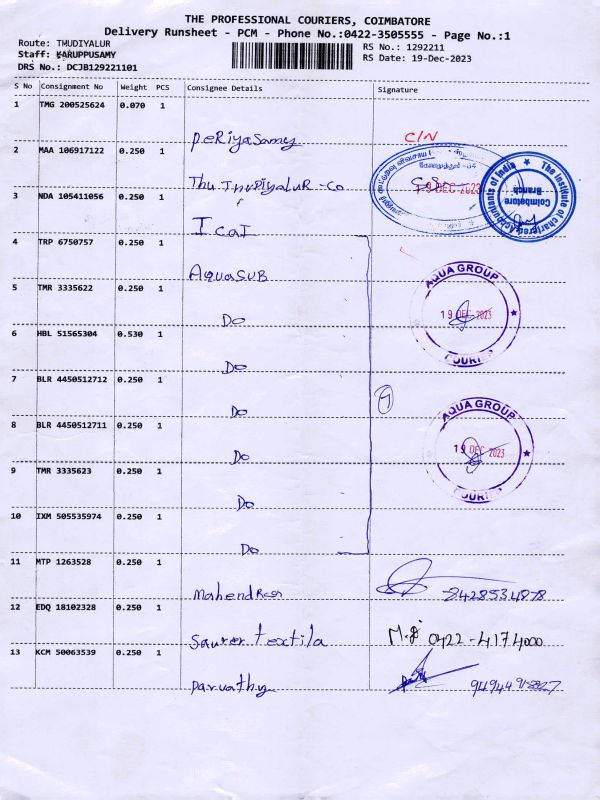 THE PROFESSIONAL COURIERS, COIMBATORE
Delivery Runsheet - PCM - Phone No.:0422-3505555 - Page No.:1
Route: TMUDIYALUR
RS No.: 1292211
Staff: KARUPPUSAMY
RS Date: 19-Dec-2023
DRS No.: DCJB129221101
S No Consignment No Weight PCS Consignee Details Signature
1 TMG 200525624 0.070 1
Periyasamy C/N
2 MAA 106917122 0.250 1
Thu Thupiyalur - Co
கோயமுத்தூர்
19 DEC 2023
The Institute of chartered Accountants of India
Coimbatore
Branch
3 NDA 105411056 0.250 1
Icai
4 TRP 6750757 0.250 1
AquaSUB
AQUA GROUP
19 DEC 2023
COURIER
5 TMR 3335622 0.250 1
Do
6 HBL 51565304 0.530 1
Do
7 BLR 4450512712 0.250 1
Do
7
AQUA GROUP
19 DEC 2023
COURIER
8 BLR 4450512711 0.250 1
Do
9 TMR 3335623 0.250 1
Do
10 IXM 505535974 0.250 1
Do
11 MTP 1263528 0.250 1
Mahendran 8428534878
12 EDQ 18102328 0.250 1
Saurer textila 0422-4174000
13 KCM 50063539 0.250 1
Parvathy